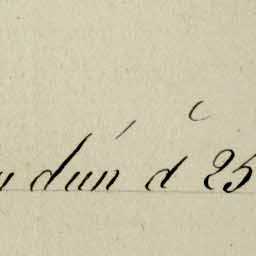 dún d 25